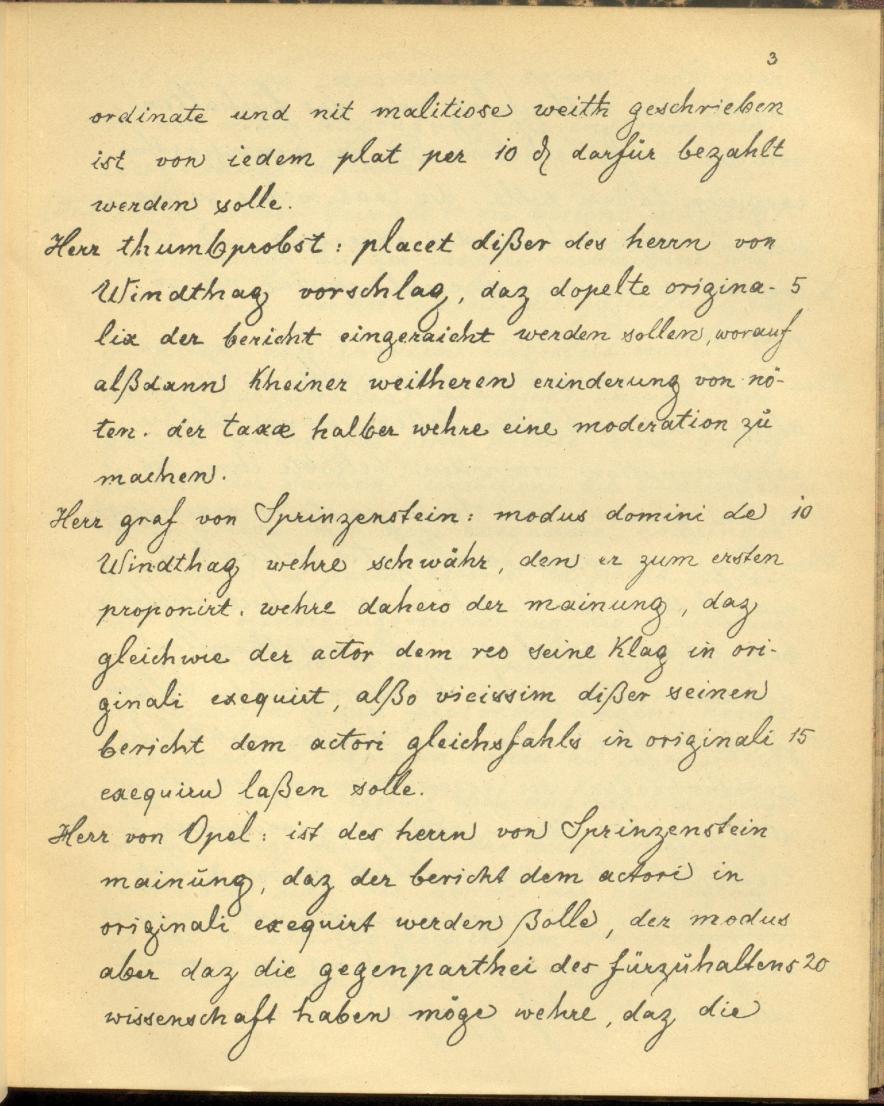 3
ordinate und nit malitiose weith geschrieben
ist von iedem plat per 10 ₰ darfür bezahlt
werden solle.
Herr thumbprobst: placet dißer des herrn von
Windthag vorschlag, daz dopelte origina- 5
lia der bericht eingeraicht werden sollen, worauf
alßdann kheiner weitheren erinderung von nö-
ten. der taxae halber wehre eine moderation zŭ
machen.
Herr graf von Sprinzenstein: modus domini de 10
Windthag wehre schwähr, den er zum ersten
proponirt. wehre dahero der mainung, daz
gleichwie der actor dem reo seine klag in ori-
ginali exequirt, alßo vicissim dißer seinen
bericht dem actori gleichsfahls in originali 15
exequirn laßen solle.
Herr von Opel: ist des herrn von Sprinzenstein
mainŭng, daz der bericht dem actori in
originali exequirt werden ßolle, der modus
aber daz die gegenparthei des fürzŭhaltens 20
wissenschaft haben möge wehre, daz die